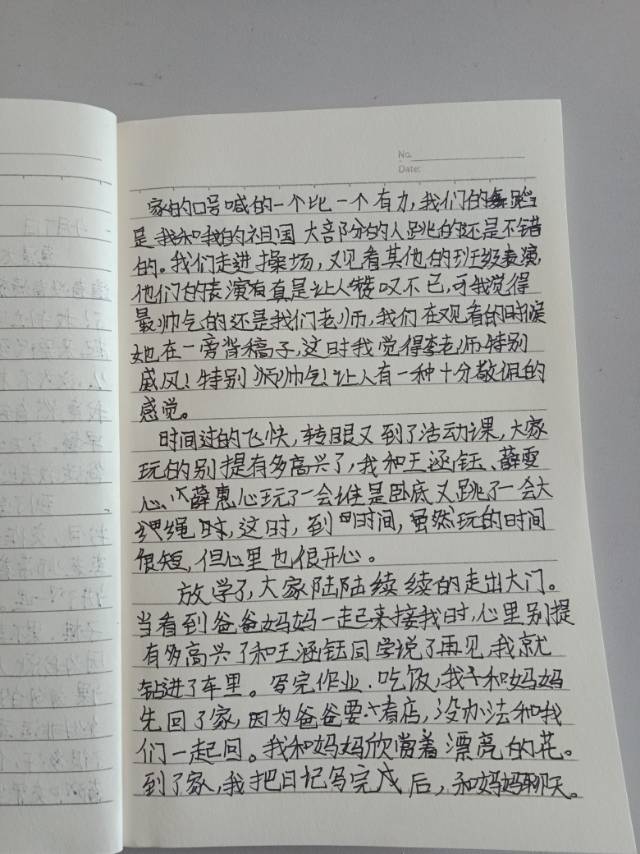 No.
Date:
家的口号喊的一个比一个有力,我们的舞蹈
是我和我的祖国大部分的人跳的还是不错
的。我们走进操场,又观看其他的班级表演,
他们的表演真是让人赞叹不已,可我觉得
最帅气的还是我们老师,我们在观看的时候
她在一旁背稿子,这时我觉得李老师特别
威风!特别帅气!让人有一种十分敬佩的
感觉。
时间过的飞快,转眼又到了活动课,大家
玩的别提有多高兴了,我和王涵钰、薛雯
心、薛惠心玩了一会谁是卧底又跳了一会大
绳时,这时,到时间,虽然玩的时间
很短,但心里也很开心。
放学了,大家陆陆续续的走出大门。
当看到爸爸妈妈一起来接我时,心里别提
有多高兴了和王涵钰同学说了再见,我就
钻进了车里。写完作业.吃饭,我和妈妈
先回了家,因为爸爸要看店,没办法和我
们一起回。我和妈妈欣赏着漂亮的花。
到了家,我把日记写完成后,和妈妈聊天。